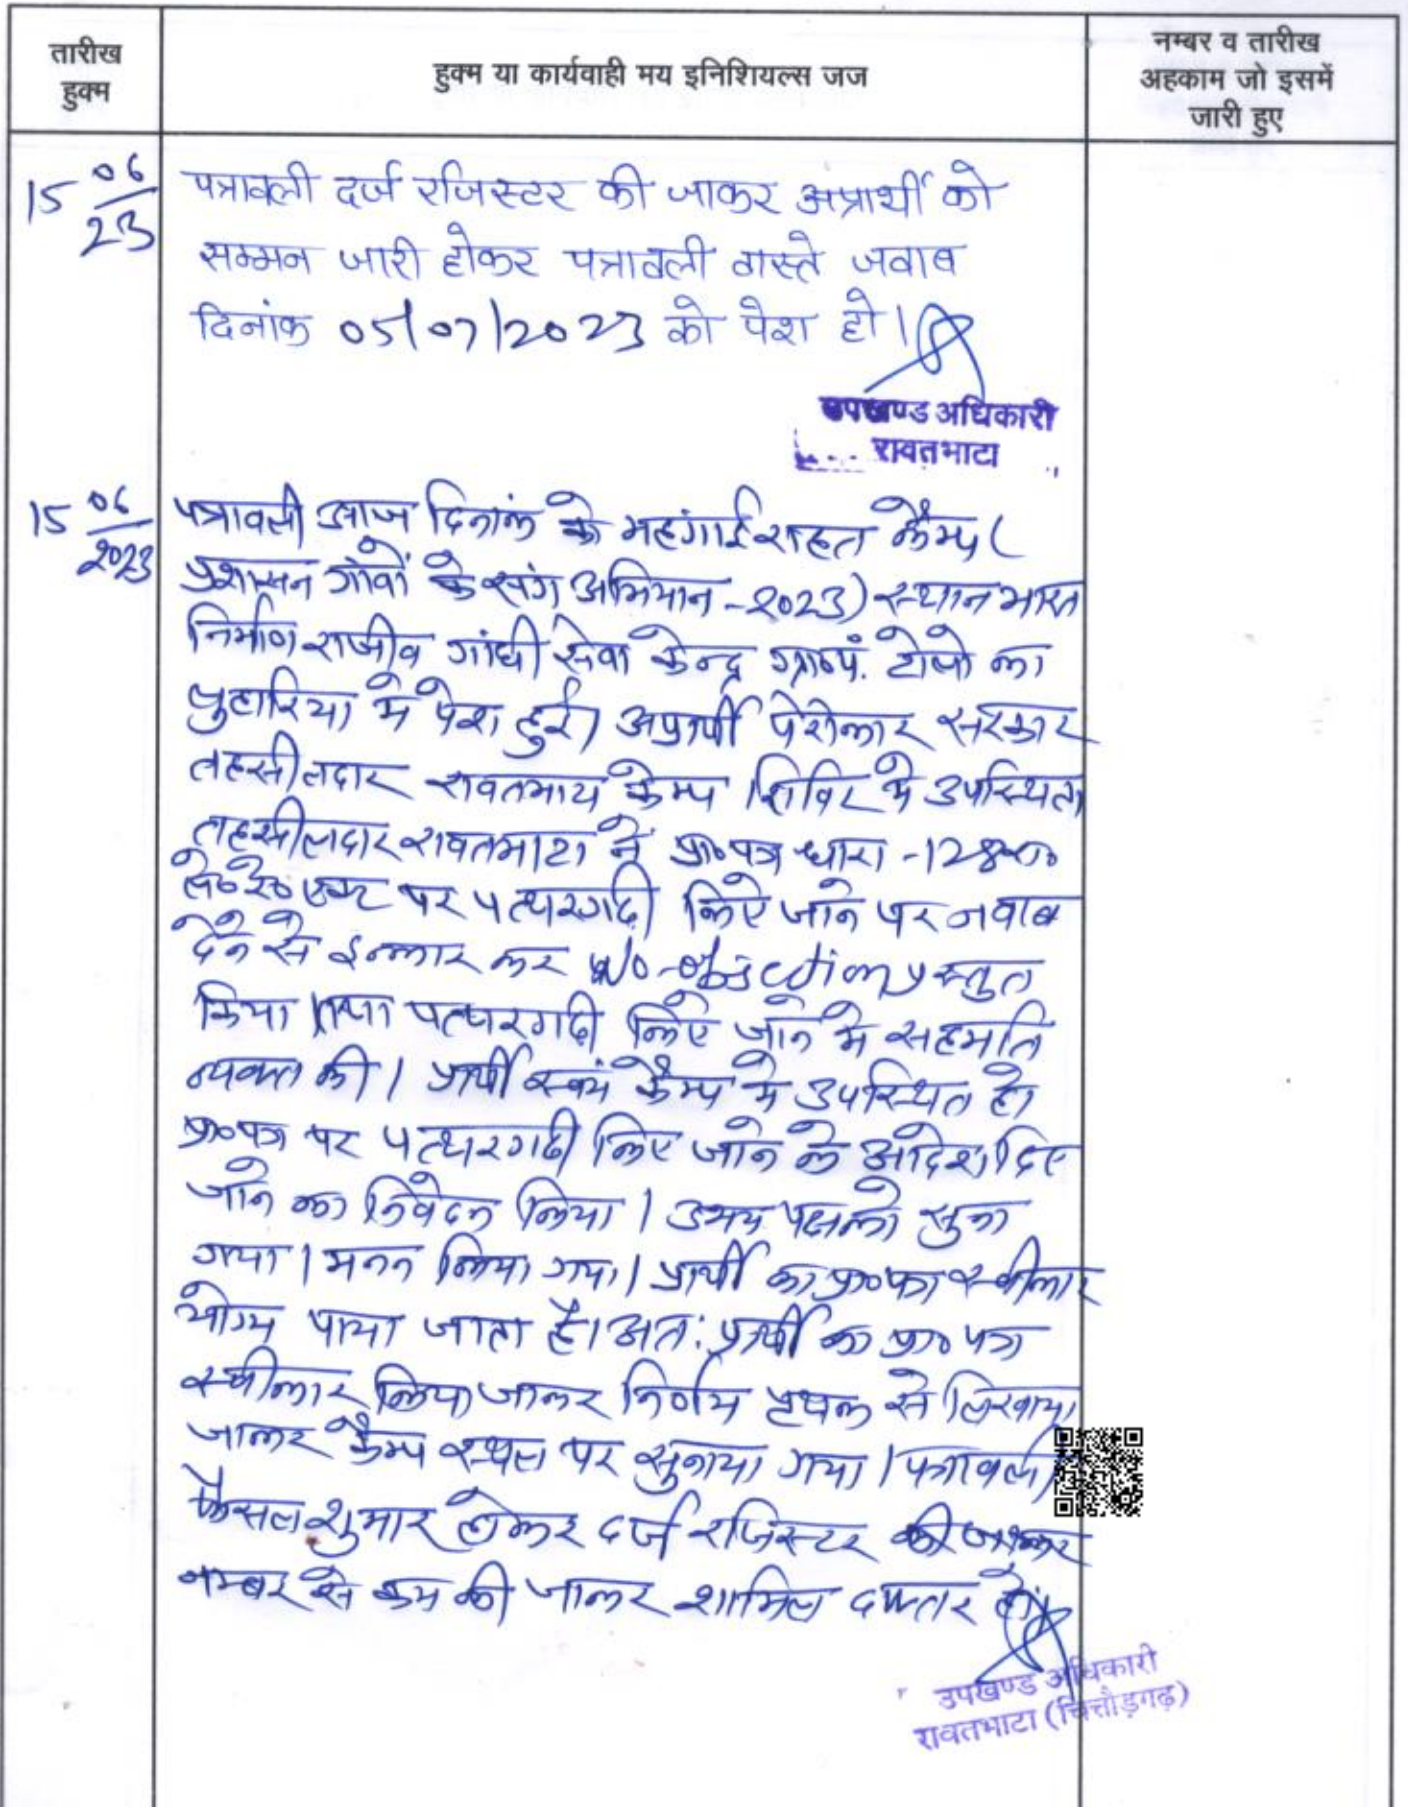 तारीख
हुक्म
हुक्म या कार्यवाही मय इनिशियल्स जज
नम्बर व तारीख
अहकाम जो इसमें
जारी हुए
15 06/23
पत्रावली दर्ज रजिस्टर की जाकर अप्रार्थी को
सम्मन जारी होकर पत्रावली वास्ते जवाब
दिनांक 05/07/2023 को पेश हो।
उपखण्ड अधिकारी
रावतभाटा
15 06/2023
पत्रावली आज दिनांक को महंगाई राहत कैम्प (
प्रशासन गांवों के संग अभियान -2023) स्थान भारत
निर्माण राजीव गांधी सेवा केन्द्र ग्रा०पं. टोलो का
लुहारिया में पेश हुई। अप्रार्थी पेरोकार सरकार
तहसीलदार रावतभाटा केम्प शिविर में उपस्थित।
तहसीलदार रावतभाटा ने प्रा०पत्र धारा -128
ले०रे० एक्ट पर पत्थरगढी किए जाने पर जवाब
देने से इन्कार कर No-objection प्रस्तुत
किया। तथा पत्थरगढी किए जाने मे सहमति
व्यक्त की। प्रार्थी स्वयं कैम्प मे उपस्थित है।
प्रा०पत्र पर पत्थरगढी किए जाने के आदेश दिए
जाने का निवेदन किया। उभय पक्ष को सुना
गया। मनन किया गया। प्रार्थी का प्रा०पत्र स्वीकार
योग्य पाया जाता है। अत: प्रार्थी का प्रा० पत्र
स्वीकार किया जाकर निर्णय पृथक से लिखाया
जाकर कैम्प स्थल पर सुनाया गया। पत्रावली
फैसल शुमार होकर दर्ज रजिस्टर की जाकर
नम्बर से कम की जाकर शामिल दफ्तर हो।
उपखण्ड अधिकारी
रावतभाटा (चित्तौड़गढ़)